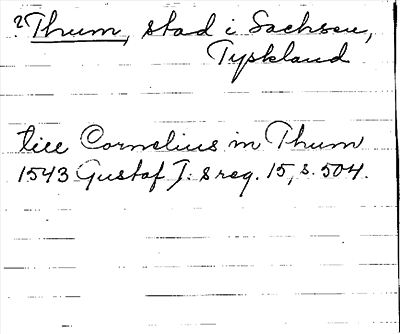 ?Thum, stad i Sachsen,
Tyskland
till Cornelius in Thum
1543 Gustaf I: s reg. 15, s. 504.